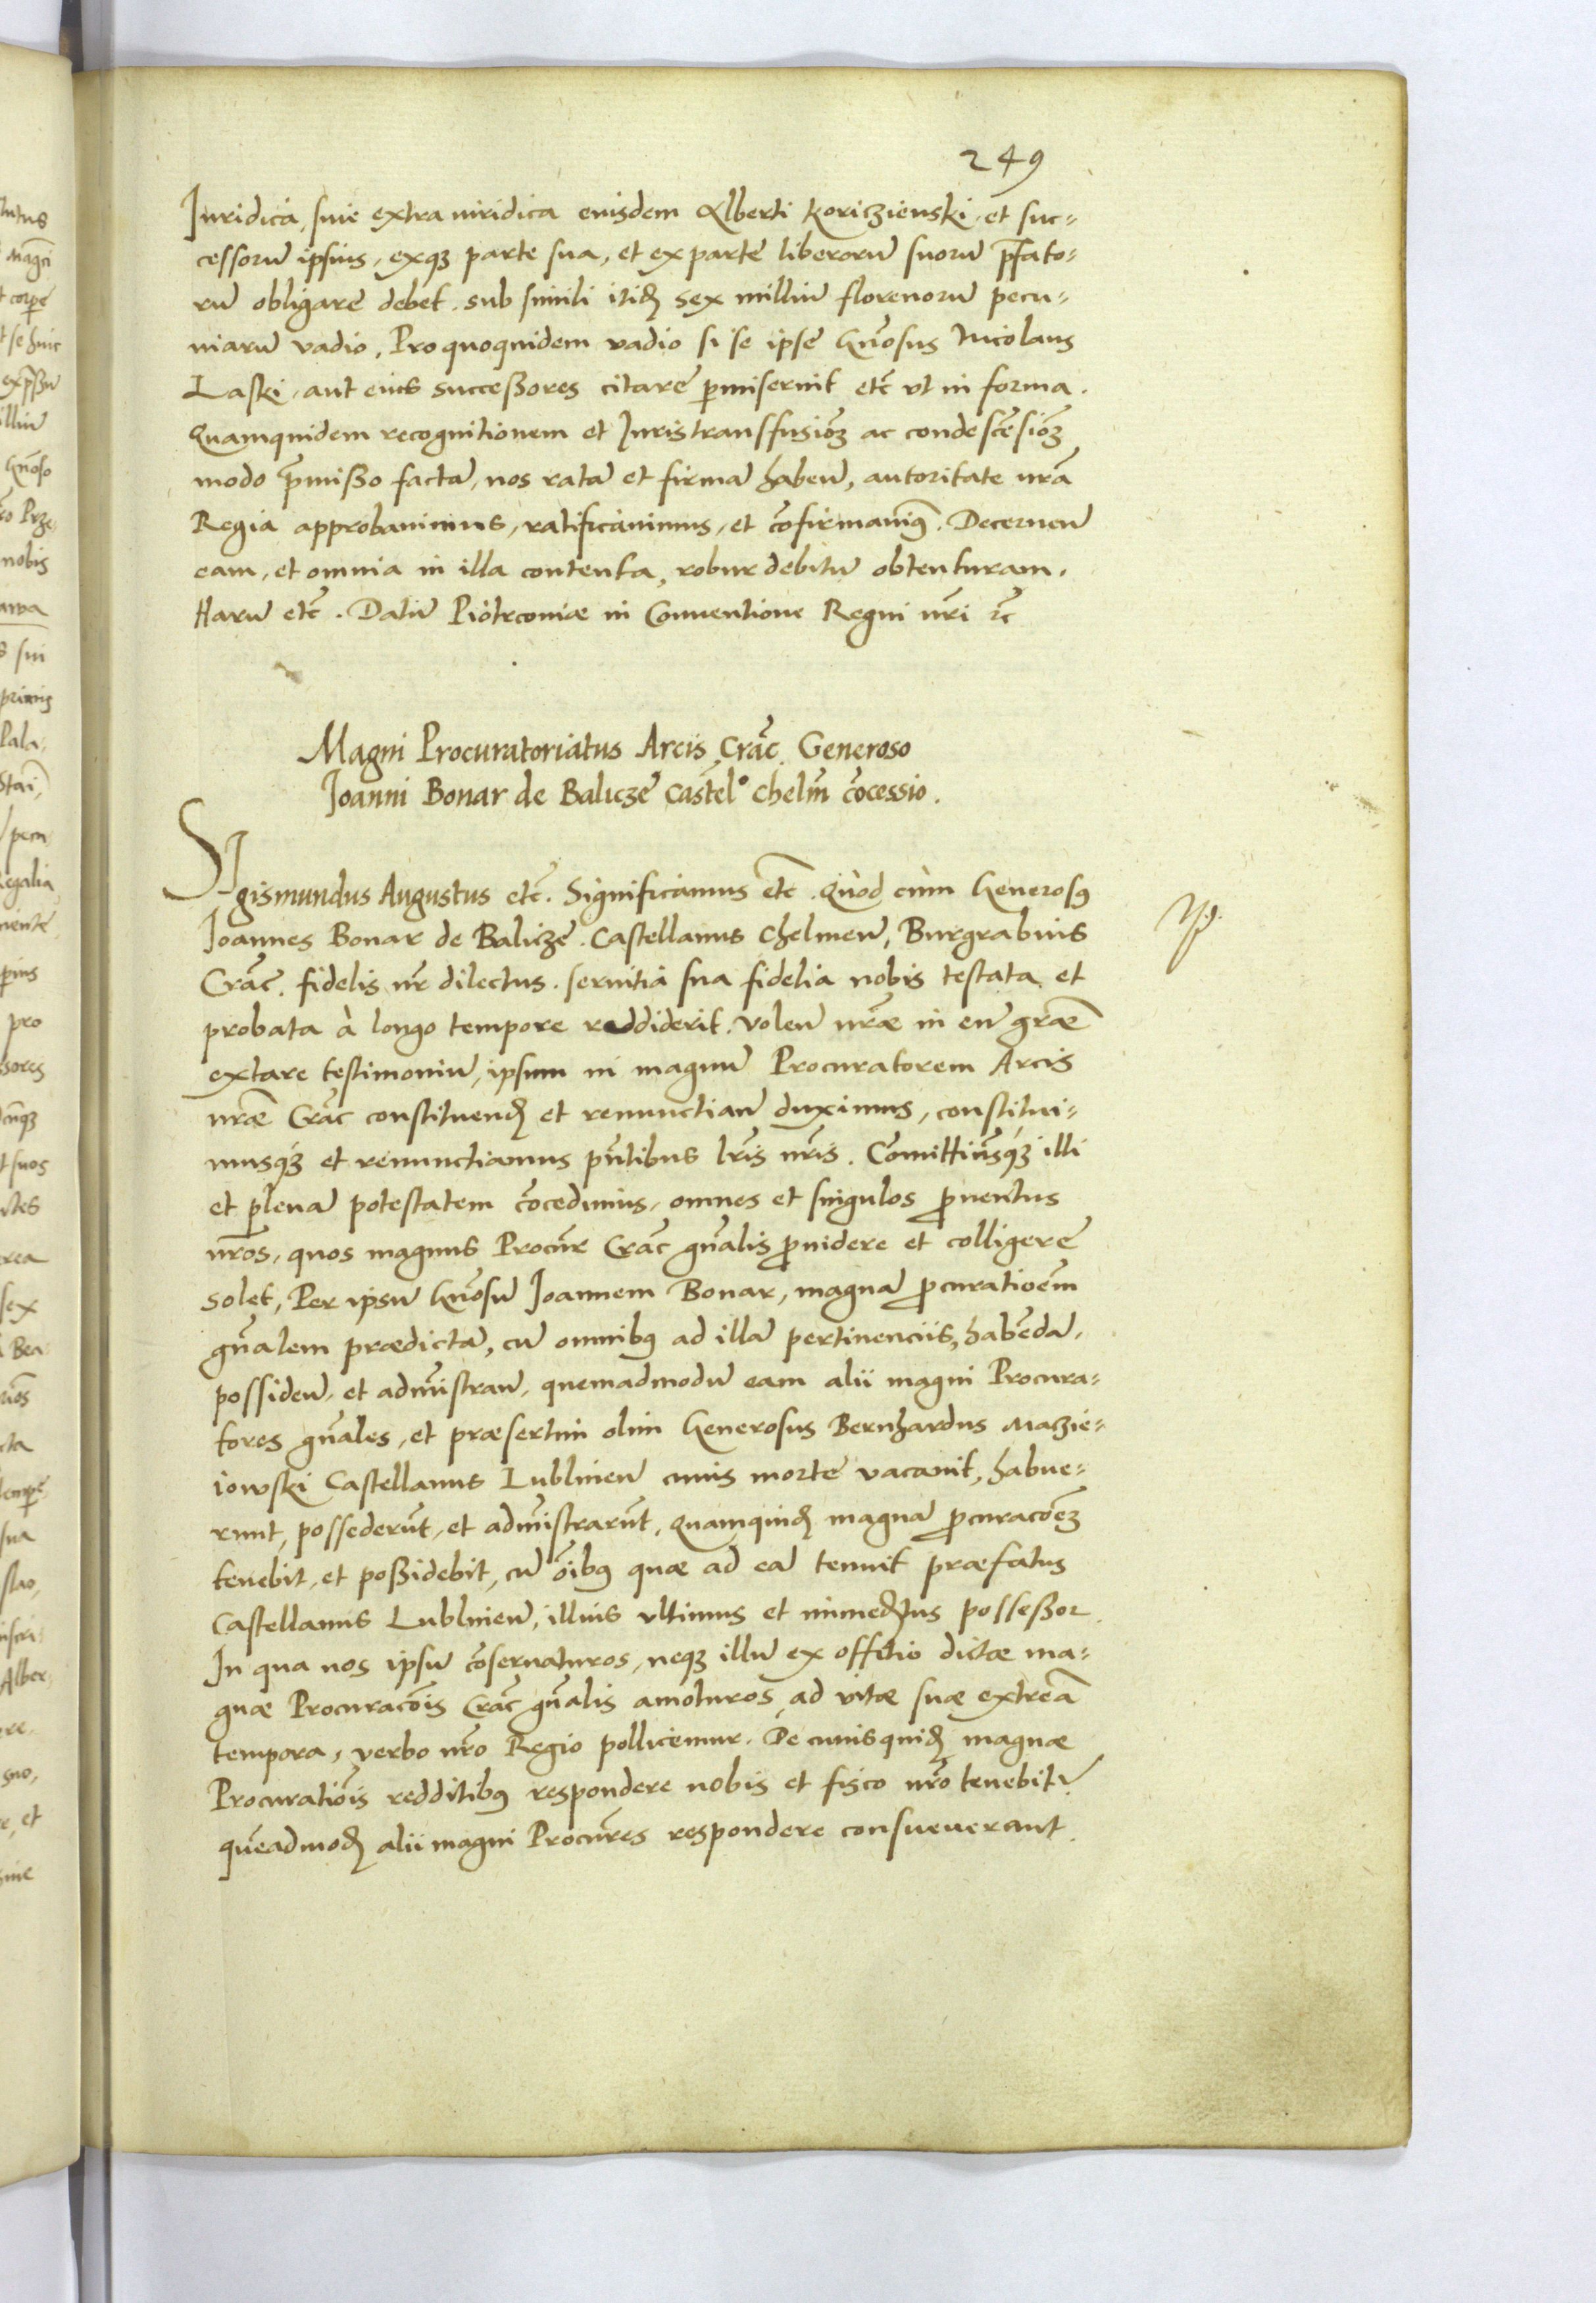 249
Iuridica, siue extra iuridica eiusdem Alberti Koriczienski, et suc=
cessorũ ipsius, exqȝ parte sua, et ex parte liberorũ suorũ p̃fato=
rũ obligare debet. sub simili itid̃ sex milliũ florenorũ pecu=
niarũ vadio. Pro quoquidem vadio si se ipse Gn̄osus Nicolaus
Laski, aut eius successores citare p̱miserint etc̃ ut in forma.
Quamquidem recognitionem et Iuris transfusiõȝ ac condescẽsiõȝ
modo p̃misso factã, nos ratã et firmã habeñ, autoritate nr̃a
Regia approbauimus, ratificauimus, et cõfirmauimꝰ. Decerneñ
eam, et omnia in illa contenta, robur debitũ obtenturam.
Harũ etc̃. Datũ Piotrcouiæ in Conuentione Regni nr̃i ⁊c̃
Magni Procuratoriatus Arcis Crac̃. Generoso
Joanni Bonar de Balicze Castel° Chelm̃ cõcessio.
SIgismundus Augustus etc̃. Significamus etc̃. Quòd cùm Generosꝰ
Joannes Bonar de Balicze. Castellanus Chelmeñ, Burgrabius
Crac̃. fidelis nr̃ dilectus. seruitia sua fidelia nobis testata et
probata à longo tempore reddiderit. Voleñ nr̃æ in eũ gr̃æ
extare testimoniũ, ipsum in magnũ Procuratorem Arcis
nr̃æ Crac̃ constituend̃ et renunctiañ duximus, constitui=
musqȝ et renunctiamus pñtibus lr̃is nr̃is. Com̃ittim̃sqȝ illi
et plenã potestatem cõcedimus, omnes et singulos ꝓuentus
nr̃os, quos magnus Procur̃ Crac̃ gñalis ꝓuidere et colligere
solet, Per ipsũ Gñosũ Joannem Bonar, magnã ꝓcuratioẽm
gñalem prædictã, cũ omnibꝰ ad illã pertinenciis, habẽdã,
possideñ, et adm̃istrañ, quemadmodũ eam alii magni Procura=
tores gñales, et præsertim olim Generosus Bernhardus Maczie=
iowski Castellanus Lublineñ cuius morte vacauit, habue=
runt, possederũt, et adm̃istrarũt, Quamquid̃ magnã ꝓcuracõeȝ
tenebit, et possidebit, cũ õibꝰ quæ ad eã tenuit præfatus
Castellanus Lublineñ, illius ultimus et immed̃tus possessor.
In qua nos ipsũ cõseruaturos, neqȝ illũ ex offitio dictæ ma=
gnæ Procuracõis Crac̃ gñalis amoturos, ad vitæ suæ extrea͂
tempora, verbo nr̃o Regio pollicemur. De cuiusquid̃ magnæ
Procuratiõis redditibꝰ respondere nobis et fisco nr̃o tenebit᷑
quẽadmod̃ alii magni Procur̃es respondere consueuerunt.